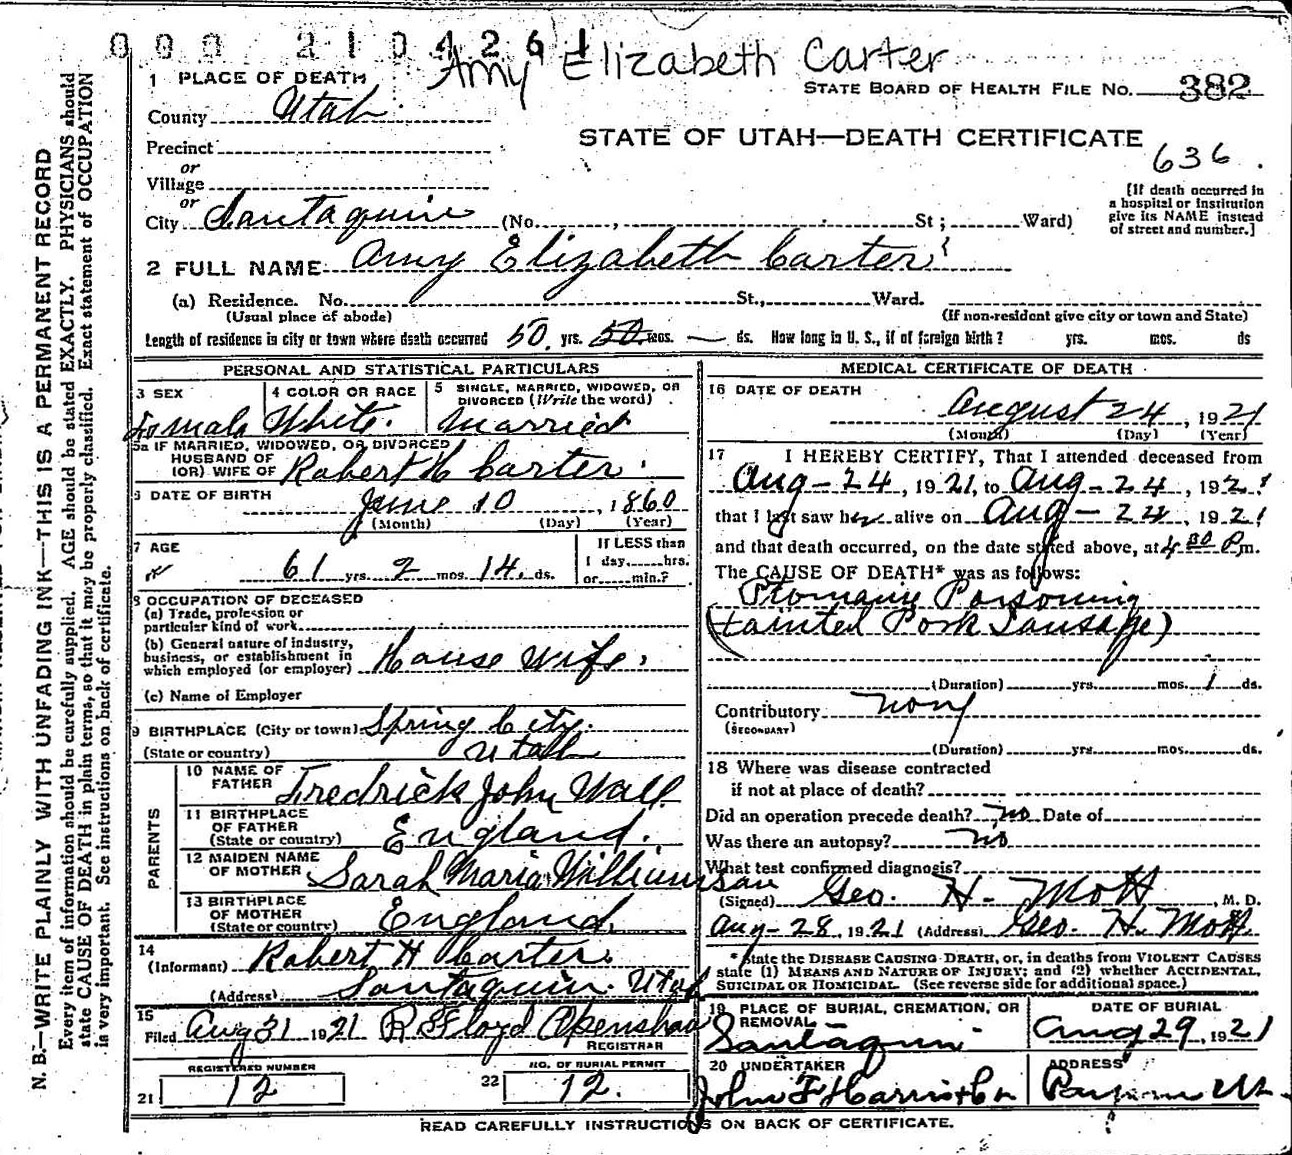 000 2104261
Amy Elizabeth Carter
1 PLACE OF DEATH
STATE BOARD OF HEALTH FILE NO. 382
County Utah
STATE OF UTAH—DEATH CERTIFICATE
636
Precinct
or
Village
or
City Santaquin (No. , St ; Ward)
[If death occurred in
a hospital or institution
give its NAME instead
of street and number.]
2 FULL NAME Amy Elizabeth Carter
(a) Residence. No. St., Ward.
(Usual place of abode) (If non-resident give city or town and State)
Length of residence in city or town where death occurred 50 yrs. 50 mos. — ds. How long in U. S., if of foreign birth? yrs. mos. ds
PERSONAL AND STATISTICAL PARTICULARS
3 SEX
Female
4 COLOR OR RACE
White.
5 SINGLE, MARRIED, WIDOWED, OR
DIVORCED (Write the word)
Married
5a IF MARRIED, WIDOWED, OR DIVORCED
HUSBAND OF
(OR) WIFE OF Robert H Carter.
6 DATE OF BIRTH
June 10, 1860
(Month) (Day) (Year)
7 AGE
61 yrs. 2 mos. 14 ds.
If LESS than
1 day,......hrs.
or......min.?
8 OCCUPATION OF DECEASED
(a) Trade, profession or
particular kind of work
(b) General nature of industry,
business, or establishment in
which employed (or employer) House Wife.
(c) Name of Employer
9 BIRTHPLACE (City or town) Spring City.
(State or country) Utah
PARENTS
10 NAME OF
FATHER Fredrick John Wall
11 BIRTHPLACE
OF FATHER
(State or country) England.
12 MAIDEN NAME
OF MOTHER Sarah Maria Williamson
13 BIRTHPLACE
OF MOTHER
(State or country) England.
14
(Informant) Robert H Carter.
(Address) Santaquin. Utah
15
Filed Aug 31 1921 R Floyd Openshaw
REGISTRAR
REGISTERED NUMBER
21 12
NO. OF BURIAL PERMIT
22 12.
MEDICAL CERTIFICATE OF DEATH
16 DATE OF DEATH
August 24, 1921
(Month) (Day) (Year)
17 I HEREBY CERTIFY, That I attended deceased from
Aug-24, 1921, to Aug-24, 1921
that I last saw her alive on Aug-24, 1921
and that death occurred, on the date stated above, at 4 30 P m.
The CAUSE OF DEATH* was as follows:
Ptomaine Poisoning
(tainted Pork Sausage)
(Duration) yrs. mos. 1 ds.
Contributory none
(SECONDARY)
(Duration) yrs. mos. ds.
18 Where was disease contracted
if not at place of death?
Did an operation precede death? No Date of
Was there an autopsy? no
What test confirmed diagnosis?
(Signed) Geo. H. Mott, M. D.
Aug-28, 1921 (Address) Geo. H. Mott.
* State the DISEASE CAUSING DEATH, or, in deaths from VIOLENT CAUSES
state (1) MEANS AND NATURE OF INJURY; and (2) whether ACCIDENTAL,
SUICIDAL OR HOMICIDAL. (See reverse side for additional space.)
19 PLACE OF BURIAL, CREMATION, OR
REMOVAL
Santaquin
DATE OF BURIAL
Aug 29, 1921
20 UNDERTAKER
John F
ADDRESS
READ CAREFULLY INSTRUCTIONS ON BACK OF CERTIFICATE.
N. B.—WRITE PLAINLY WITH UNFADING INK—THIS IS A PERMANENT RECORD
Every item of information should be carefully supplied. AGE should be stated EXACTLY. PHYSICIANS should
state CAUSE OF DEATH in plain terms, so that it may be properly classified. Exact statement of OCCUPATION
is very important. See instructions on back of certificate.